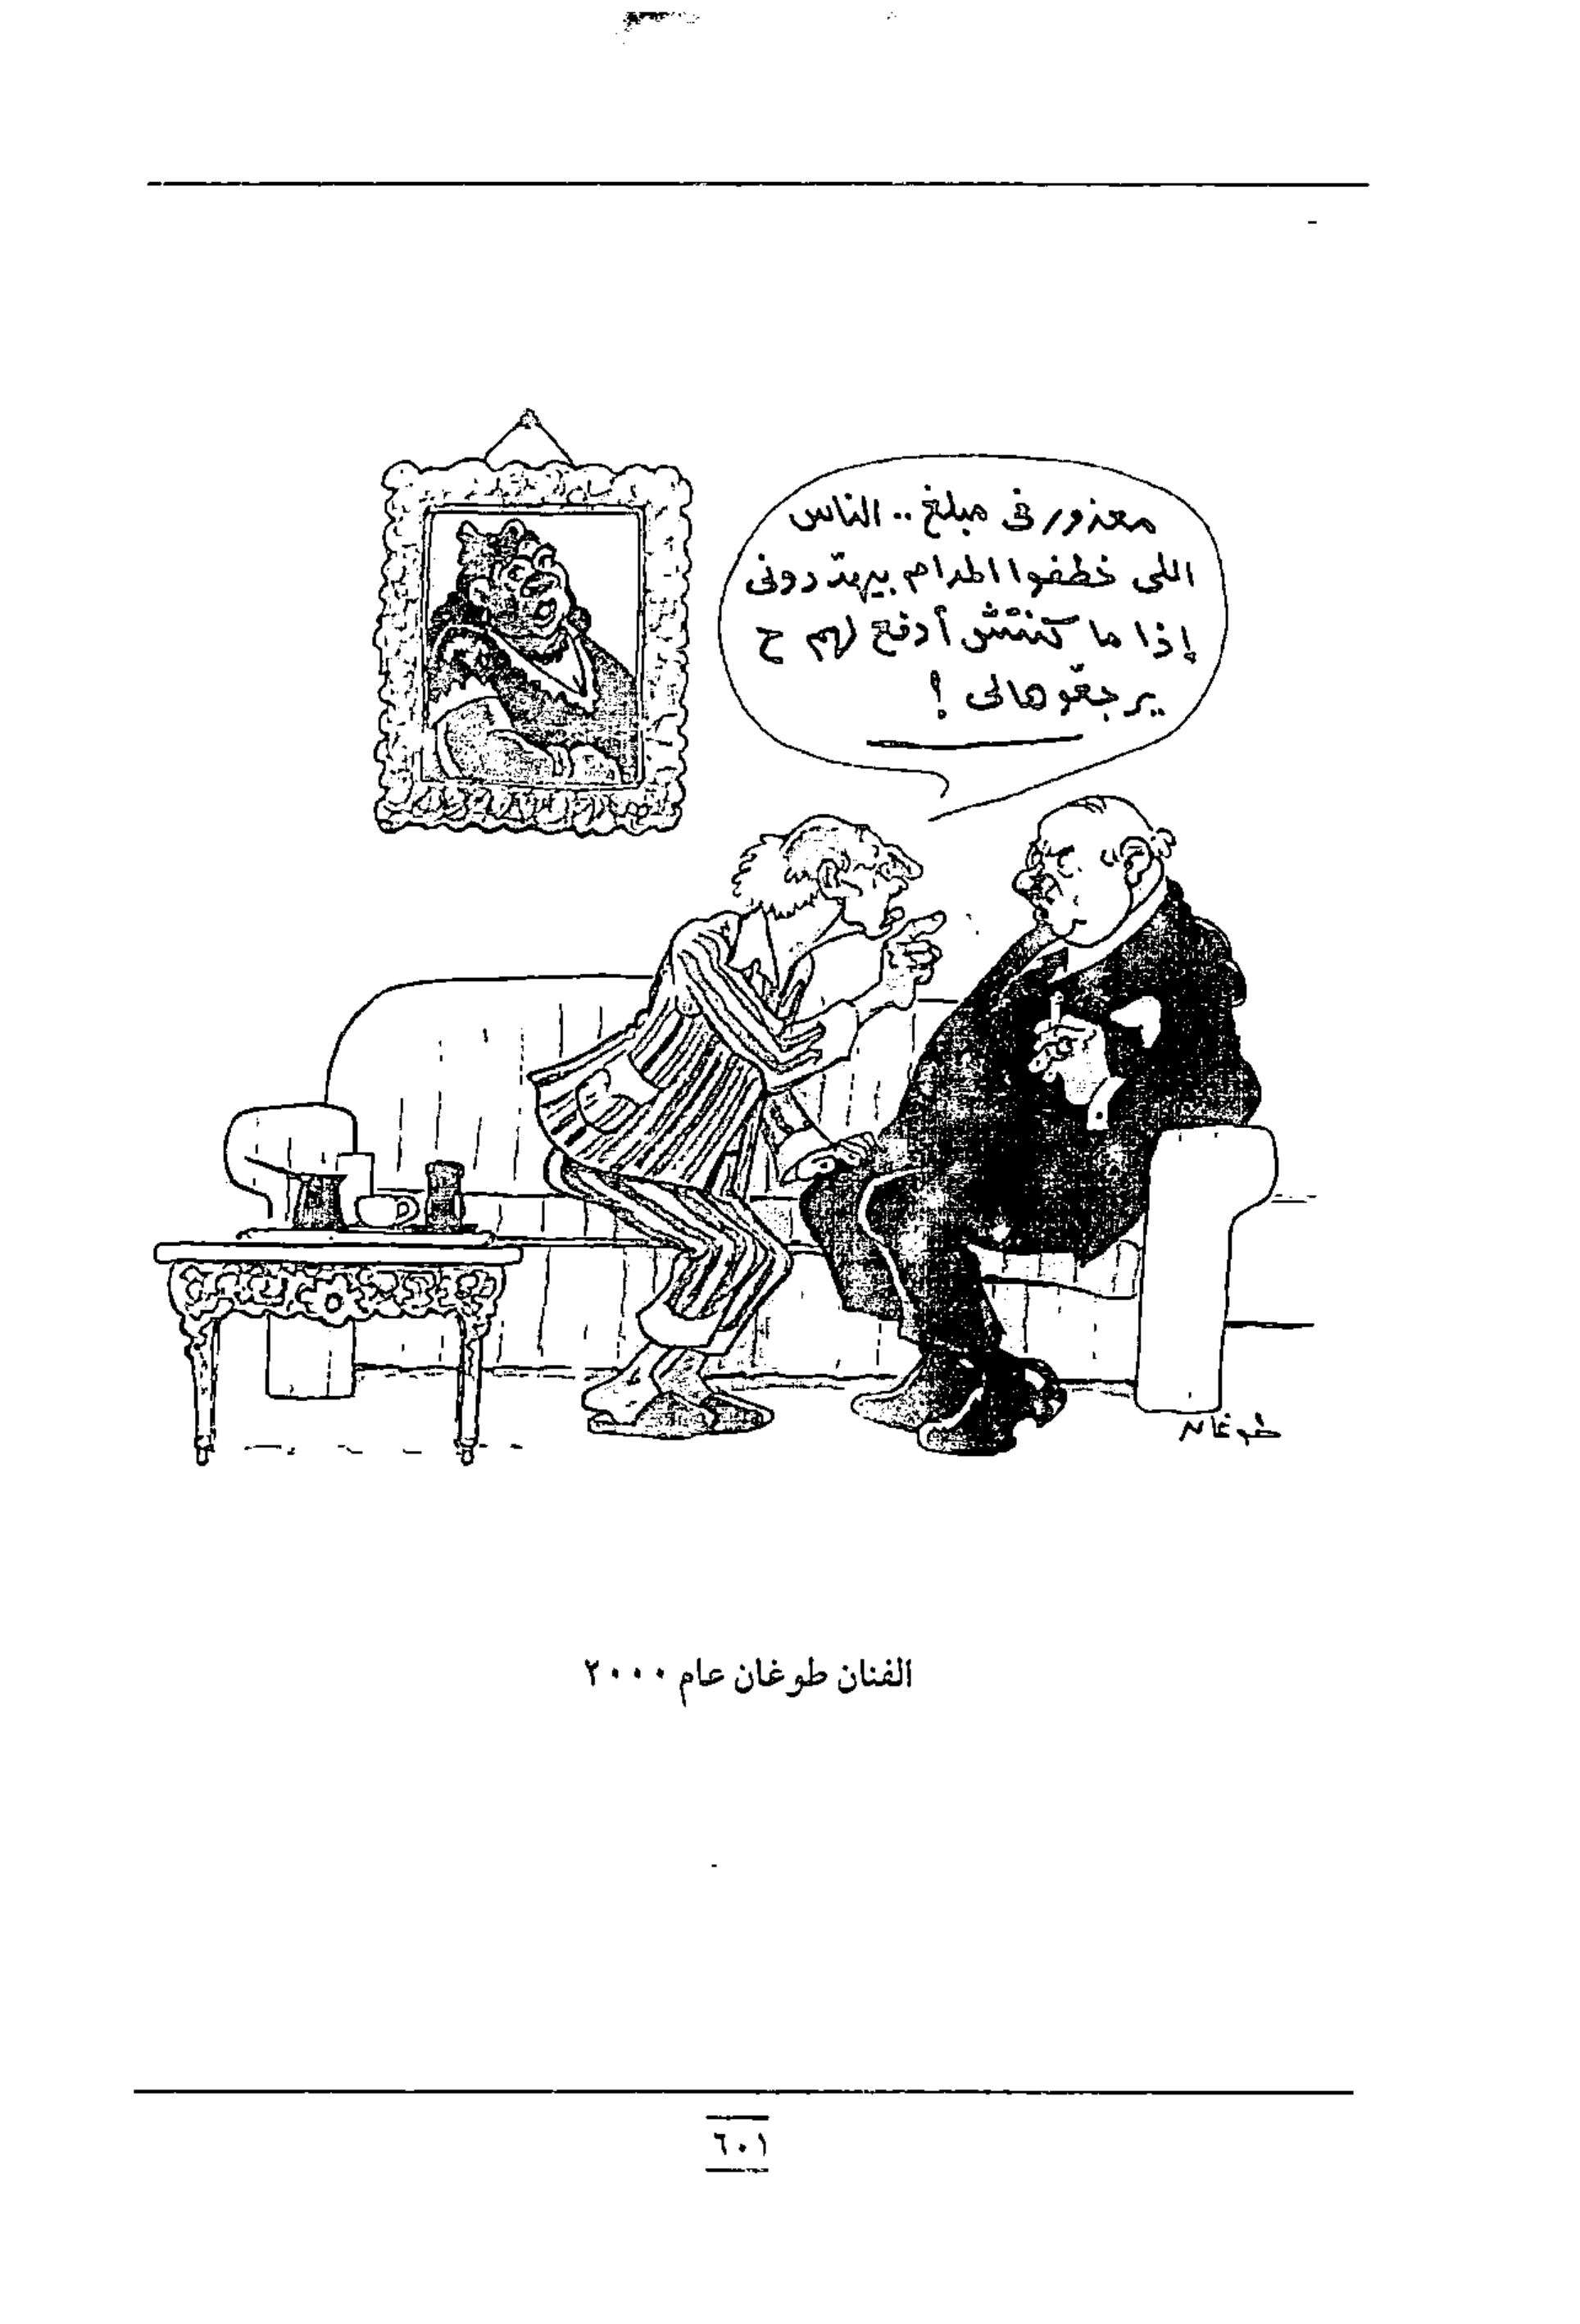 معذور فى مبلغ .. الناس
اللى خطفوا المدام بيهدّدونى
إذا ما كنتش أدفع لهم ح
يرجّعوهالى !
طوغان
الفنان طوغان عام ٢٠٠٠
٦٠١